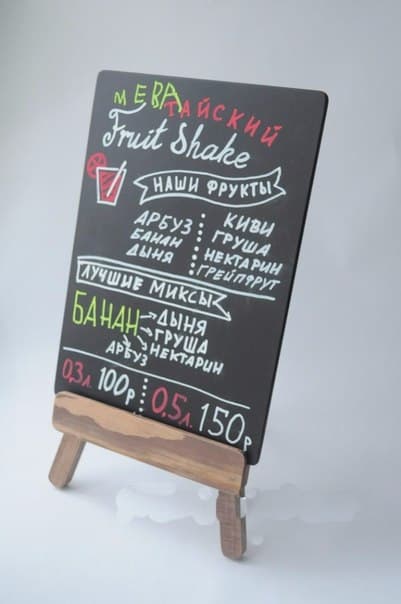 МЕВА
ТАЙСКИЙ
Fruit Shake
НАШИ ФРУКТЫ
АРБУЗ
БАНАН
ДЫНЯ
КИВИ
ГРУША
НЕКТАРИН
ГРЕЙПФРУТ
ЛУЧШИЕ МИКСЫ
БАНАН
ДЫНЯ
ГРУША
НЕКТАРИН
АРБУЗ
0,3л. 100р
0,5л. 150р